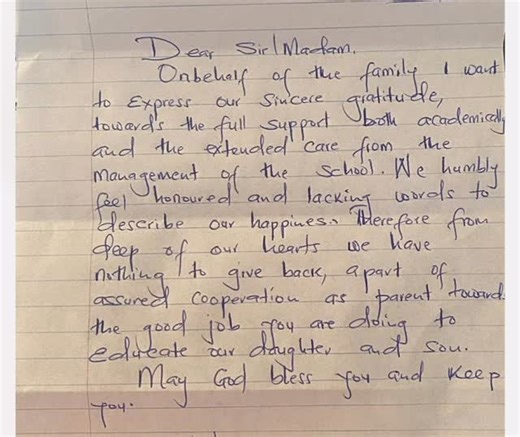 Dear Sir/Madam.
Onbehalf of the family I want
to Express our Sincere gratitude,
towards the full support both academically
and the extended care from the
Management of the school. We humbly
feel honoured and lacking words to
describe our happiness. Therefore from
deep of our hearts we have
nothing to give back, apart of
assured cooperation as parent toward
the good job you are doing to
educate our daughter and son.
May God bless you and Keep
you.